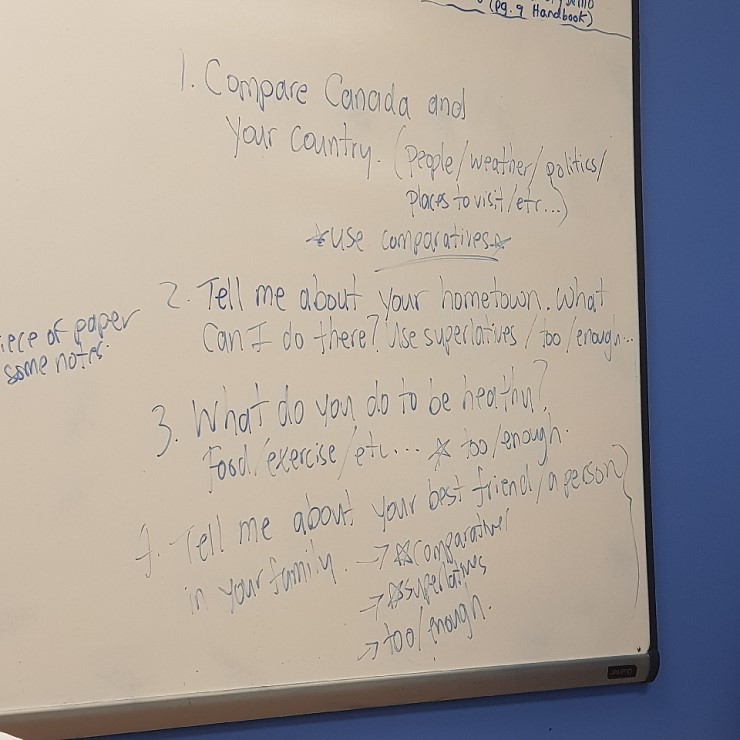 (pg. 9 Handbook)
1. Compare Canada and
your country. (people/weather/politics/
places to visit/etc...)
*use comparatives*
2. Tell me about your hometown. What
Can I do there? Use superlatives/too/enough...
iece of paper
some notes.
3. What do you do to be healthy?
Food/exercise/etc... * too/enough.
4. Tell me about your best friend/a person
in your family. → *comparatives
→ *superlatives
→ too/enough.